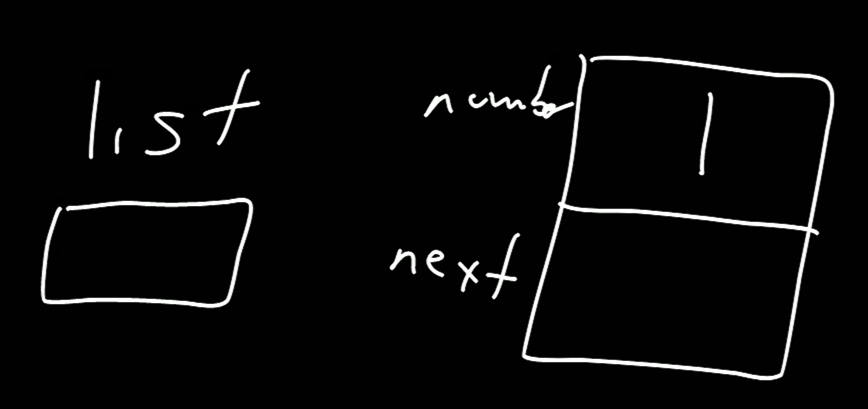 list
number
1
next